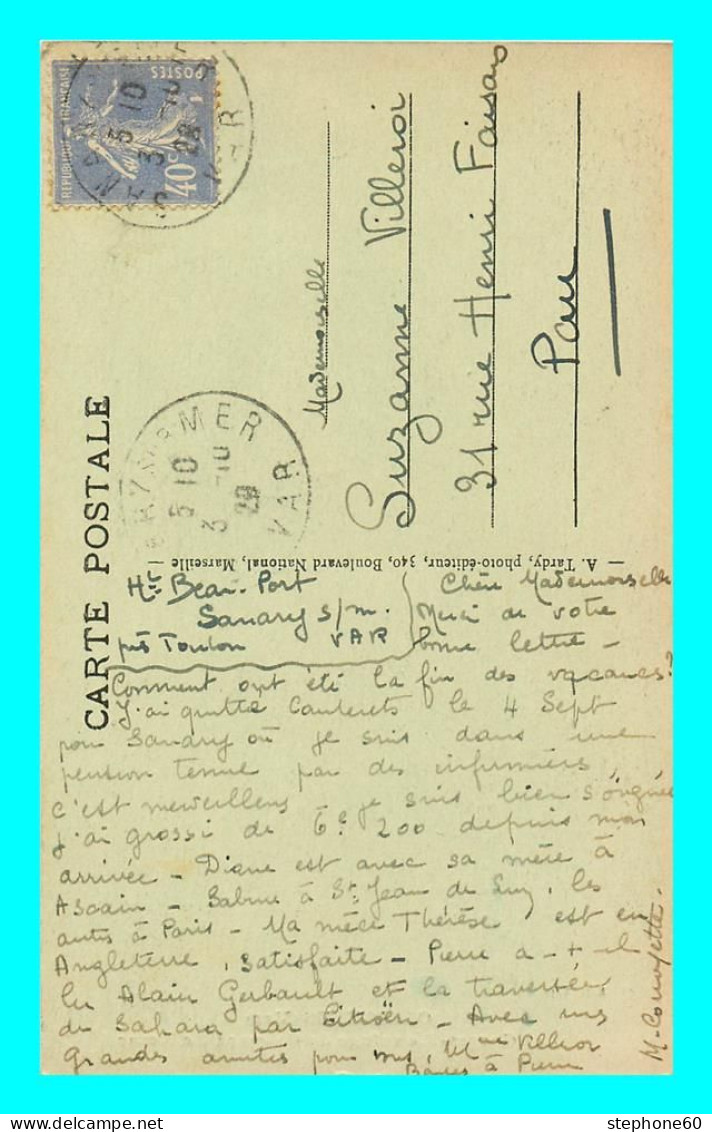 CARTE POSTALE
RÉPUBLIQUE FRANÇAISE
POSTES
40c
SANARY MER
5 10
3 -10
28
VAR
MER
5 10
3 -10
28
VAR
Mademoiselle
Suzanne Villeroi
31 rue Henri Faisans
Pau
— A. Tardy, photo-éditeur, 340, Boulevard National, Marseille —
Ht Beau-Port
Sanary s/m.
près Toulon VAR
Chère Mademoiselle
Merci de votre
bonne lettre -
Comment ont été la fin des vacances?
J'ai quitté Cauterets le 4 Sept
pour Sanary où je suis dans une
pension tenue par des infirmières,
c'est merveilleux je suis bien soignée
j'ai grossi de 6k 200 depuis mon
arrivée - Diane est avec sa mère à
Ascain - Sabine à St Jean de Luz, les
autres à Paris - Ma nièce Thérèse est en
Angleterre, satisfaite - Pierre a-t-il
lu Alain Gerbault et la traversée
du Sahara par Citroën - Avec mes
grandes amitiés pour vous, Mme Villeroi
Baisers à Pierre
stephone60